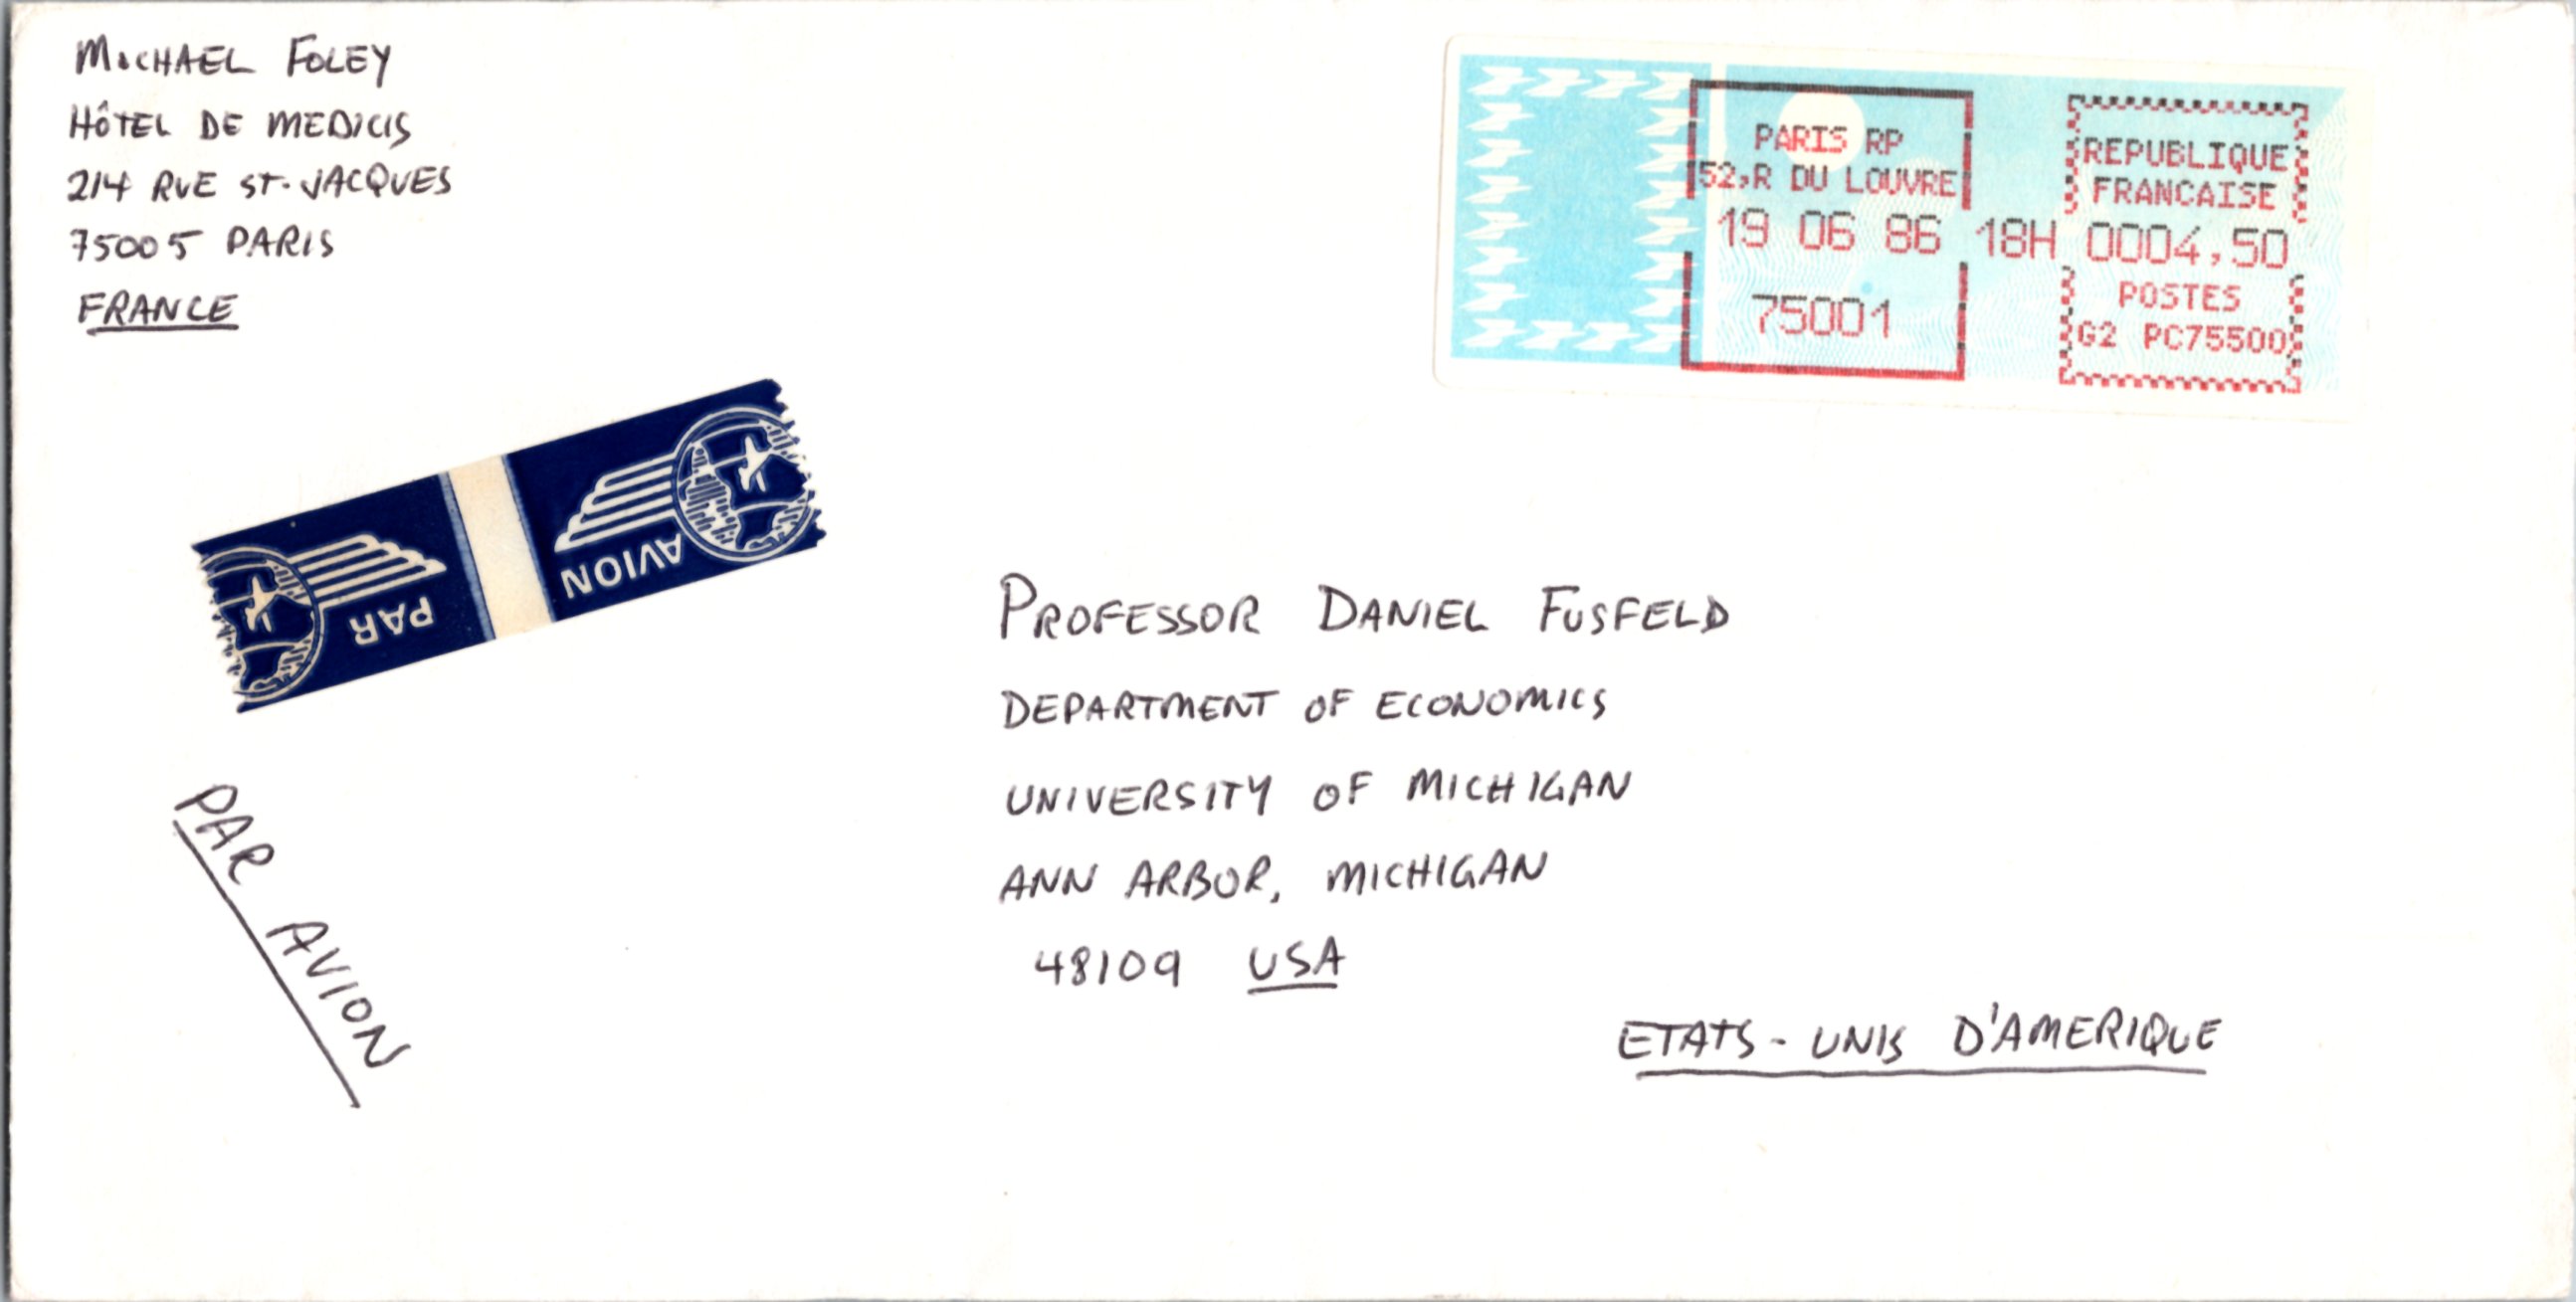 MICHAEL FOLEY
HÔTEL DE MEDICIS
214 RUE ST. JACQUES
75005 PARIS
FRANCE
PARIS RP
52,R DU LOUVRE
19 06 86 18H
75001
REPUBLIQUE
FRANCAISE
0004,50
POSTES
G2 PC75500
PAR
AVION
PROFESSOR DANIEL FUSFELD
DEPARTMENT OF ECONOMICS
UNIVERSITY OF MICHIGAN
ANN ARBOR, MICHIGAN
48109 USA
ETATS-UNIS D'AMERIQUE
PAR AVION